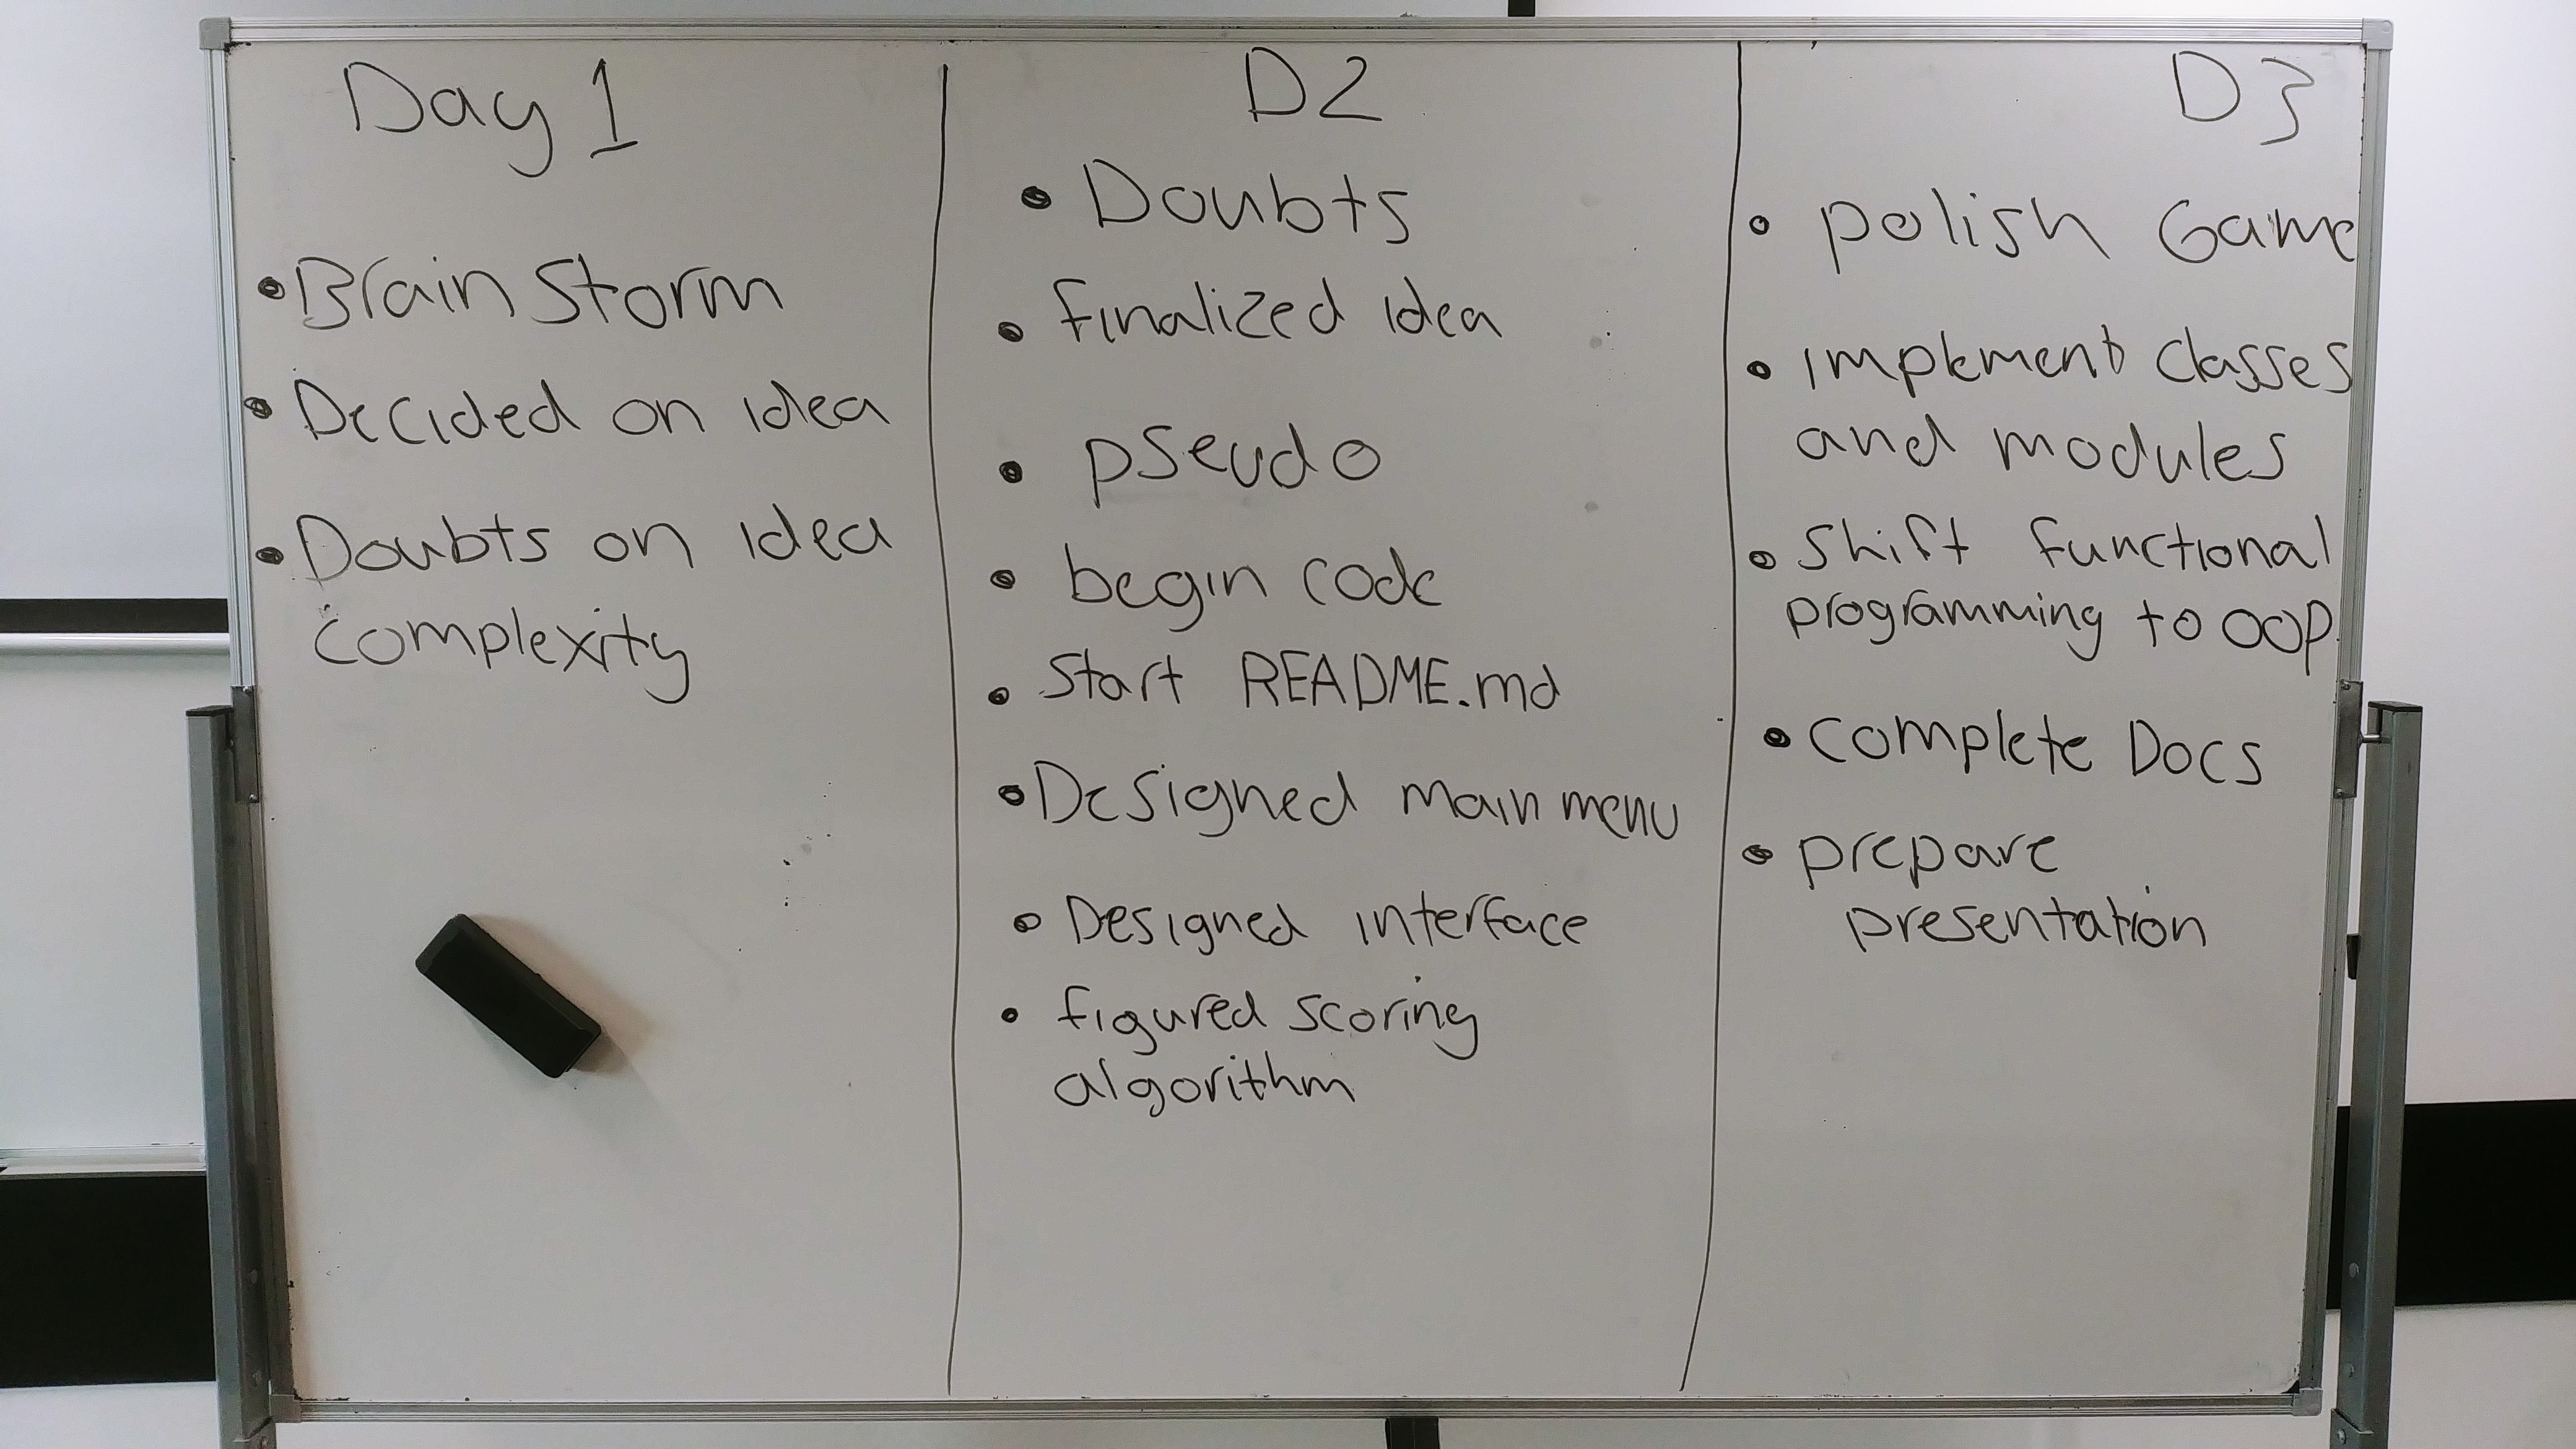 Day 1
• Brain Storm
• Decided on idea
• Doubts on idea
complexity
D2
• Doubts
• finalized idea
• pseudo
• begin code
• Start README.md
• Designed main menu
• Designed interface
• figured scoring
algorithm
D3
• polish Game
• implement classes
and modules
• shift functional
programming to OOP
• complete Docs
• prepare
presentation